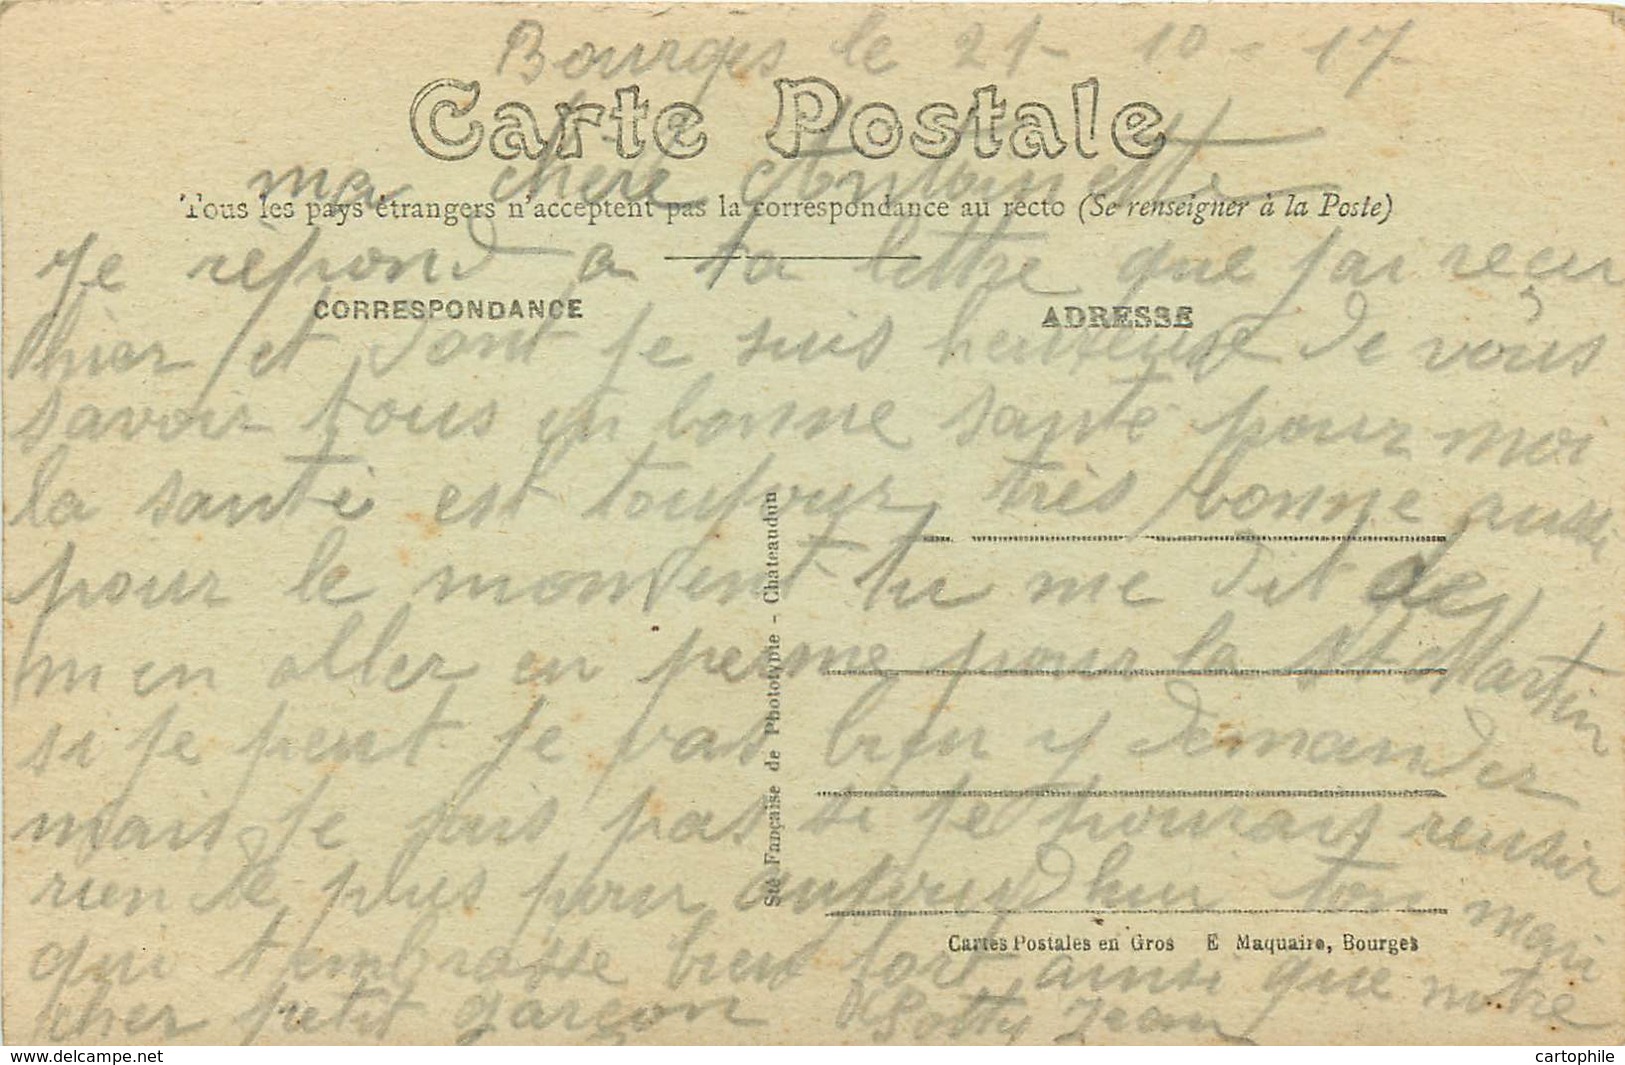 Bourges le 21-10-17
Carte Postale
ma chère Antoinette
Tous les pays étrangers n'acceptent pas la correspondance au recto (Se renseigner à la Poste)
Je répond a ta lettre que j'ai reçu
CORRESPONDANCE
ADRESSE
hier et dont je suis heureuse de vous
savoir tous en bonne santé pour moi
la santé est toujour très bonne aussi
pour le moment tu me dit de
m en aller en perme pour la St Martin
si je peut je vas bien y demander
mais je sais pas si je pourais reusir
rien de plus pour aujourd hui ton mari
qui t embrasse bien fort ainsi que notre
cher petit garçon Jean
Sté Française de Phototypie - Chateaudun
Cartes Postales en Gros E Maquaire, Bourges
www.delcampe.net
cartophile